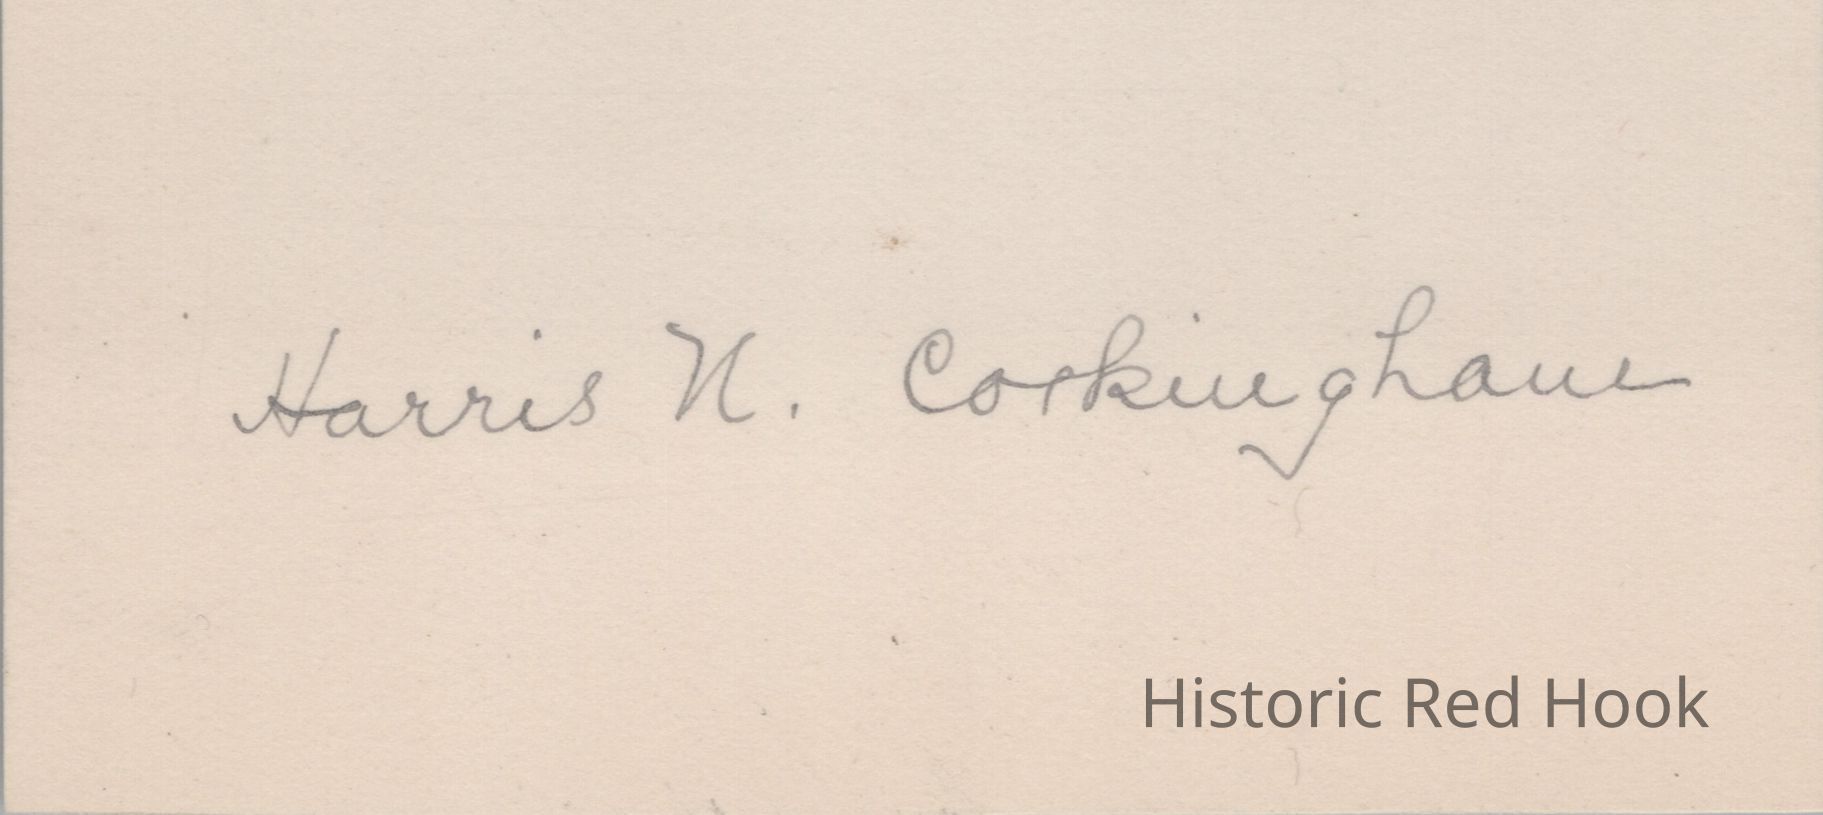 Harris N. Corkingham
Historic Red Hook